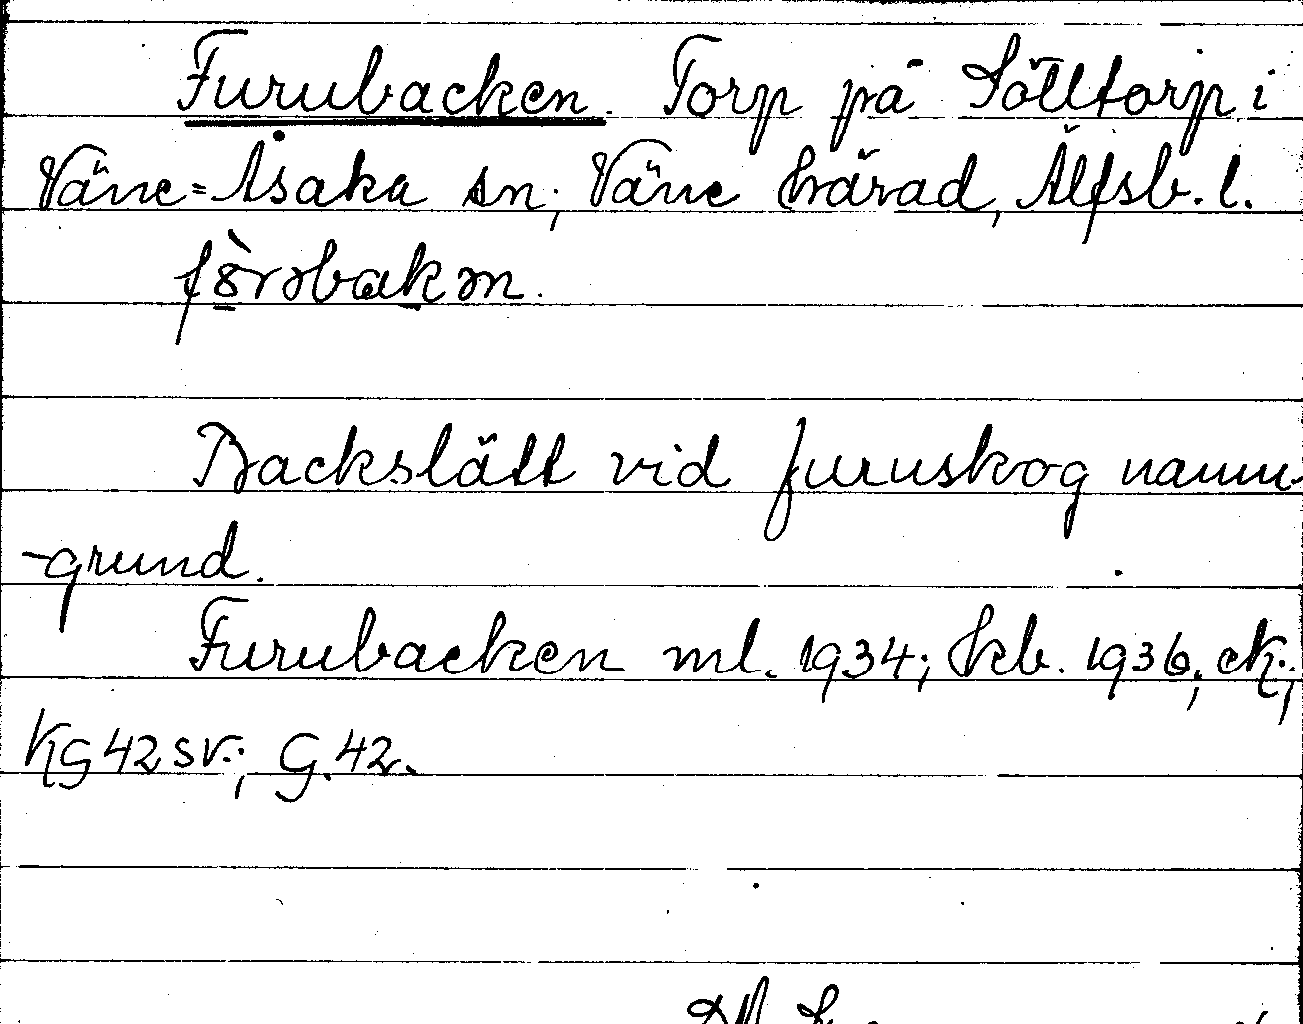 Furubacken. Torp på Sölltorp i
Väne=Åsaka sn; Väne härad, Älfsb. l.
fö̀rəbakən.
Backslätt vid furuskog namn-
-grund.
Furubacken ml. 1934; skb. 1936; ek.;
KG 42 sv.; G. 42.